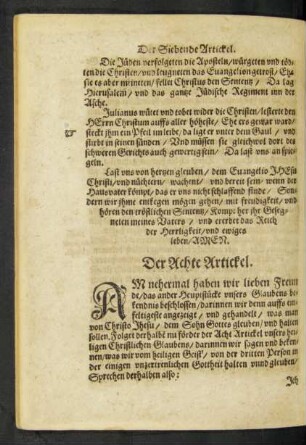 Der Siebende Artickel.
Die Jüden verfolgeten die Aposteln/ würgeten und töd-
ten die Christen/ und leugneten das Euangelion getrost/ Ehe
sie es aber meineten/ fellet Christus den Sententz/ Da lag
Hierusalem/ und das gantze Jüdische Regiment inn der
Asche.
Julianus wütet und tobet wider die Christen/ lesterte den
HErrn Christum auffs aller höheste/ Ehe ers gewar ward/
steckt ihm ein Pfeil im leibe/ da ligt er unter dem Gaul / und
stirbt in seinen sünden / Und müssen sie gleichwol dort des
schweren Gerichts auch gewertig sein/ Da last uns an spie-
geln.
Last uns von hertzen gleuben/ dem Euangelio JHEsu
Christi/ und nüchtern/ wachent/ und bereit sein/ wenn der
Hausvater kömpt/ das er uns nicht schlaffend finde/ Son-
dern wir ihme entkegen mögen gehen/ mit freudigkeit/ und
hören den tröstlichen Sententz/ Kompt her ihr Geseg-
neten meines Vaters / und ererbet das Reich
der Herrligkeit/ und ewiges
leben/ AMEN.
Der Achte Artickel.
AM nehermal haben wir lieben Freun
de/ das ander Heuptstück unsers Glaubens be-
kendnis beschlossen/ darinnen wir denn auffs ein-
feltigeste angezeigt / und gehandelt / was man
von Christo Jhesu / dem Sohn Gottes gleuben/ und halten
sollen. Folget derhalbē nu förder der Acht Artickel unsers hei-
ligen Christlichen Glaubens/ darinnen wir sagen und beken-
nen/ was wir vom heiligen Geist/ von der dritten Person in
der einigen unzertrenlichen Gottheit halten unnd gleuben/
Sprechen derhalben also:
Ich